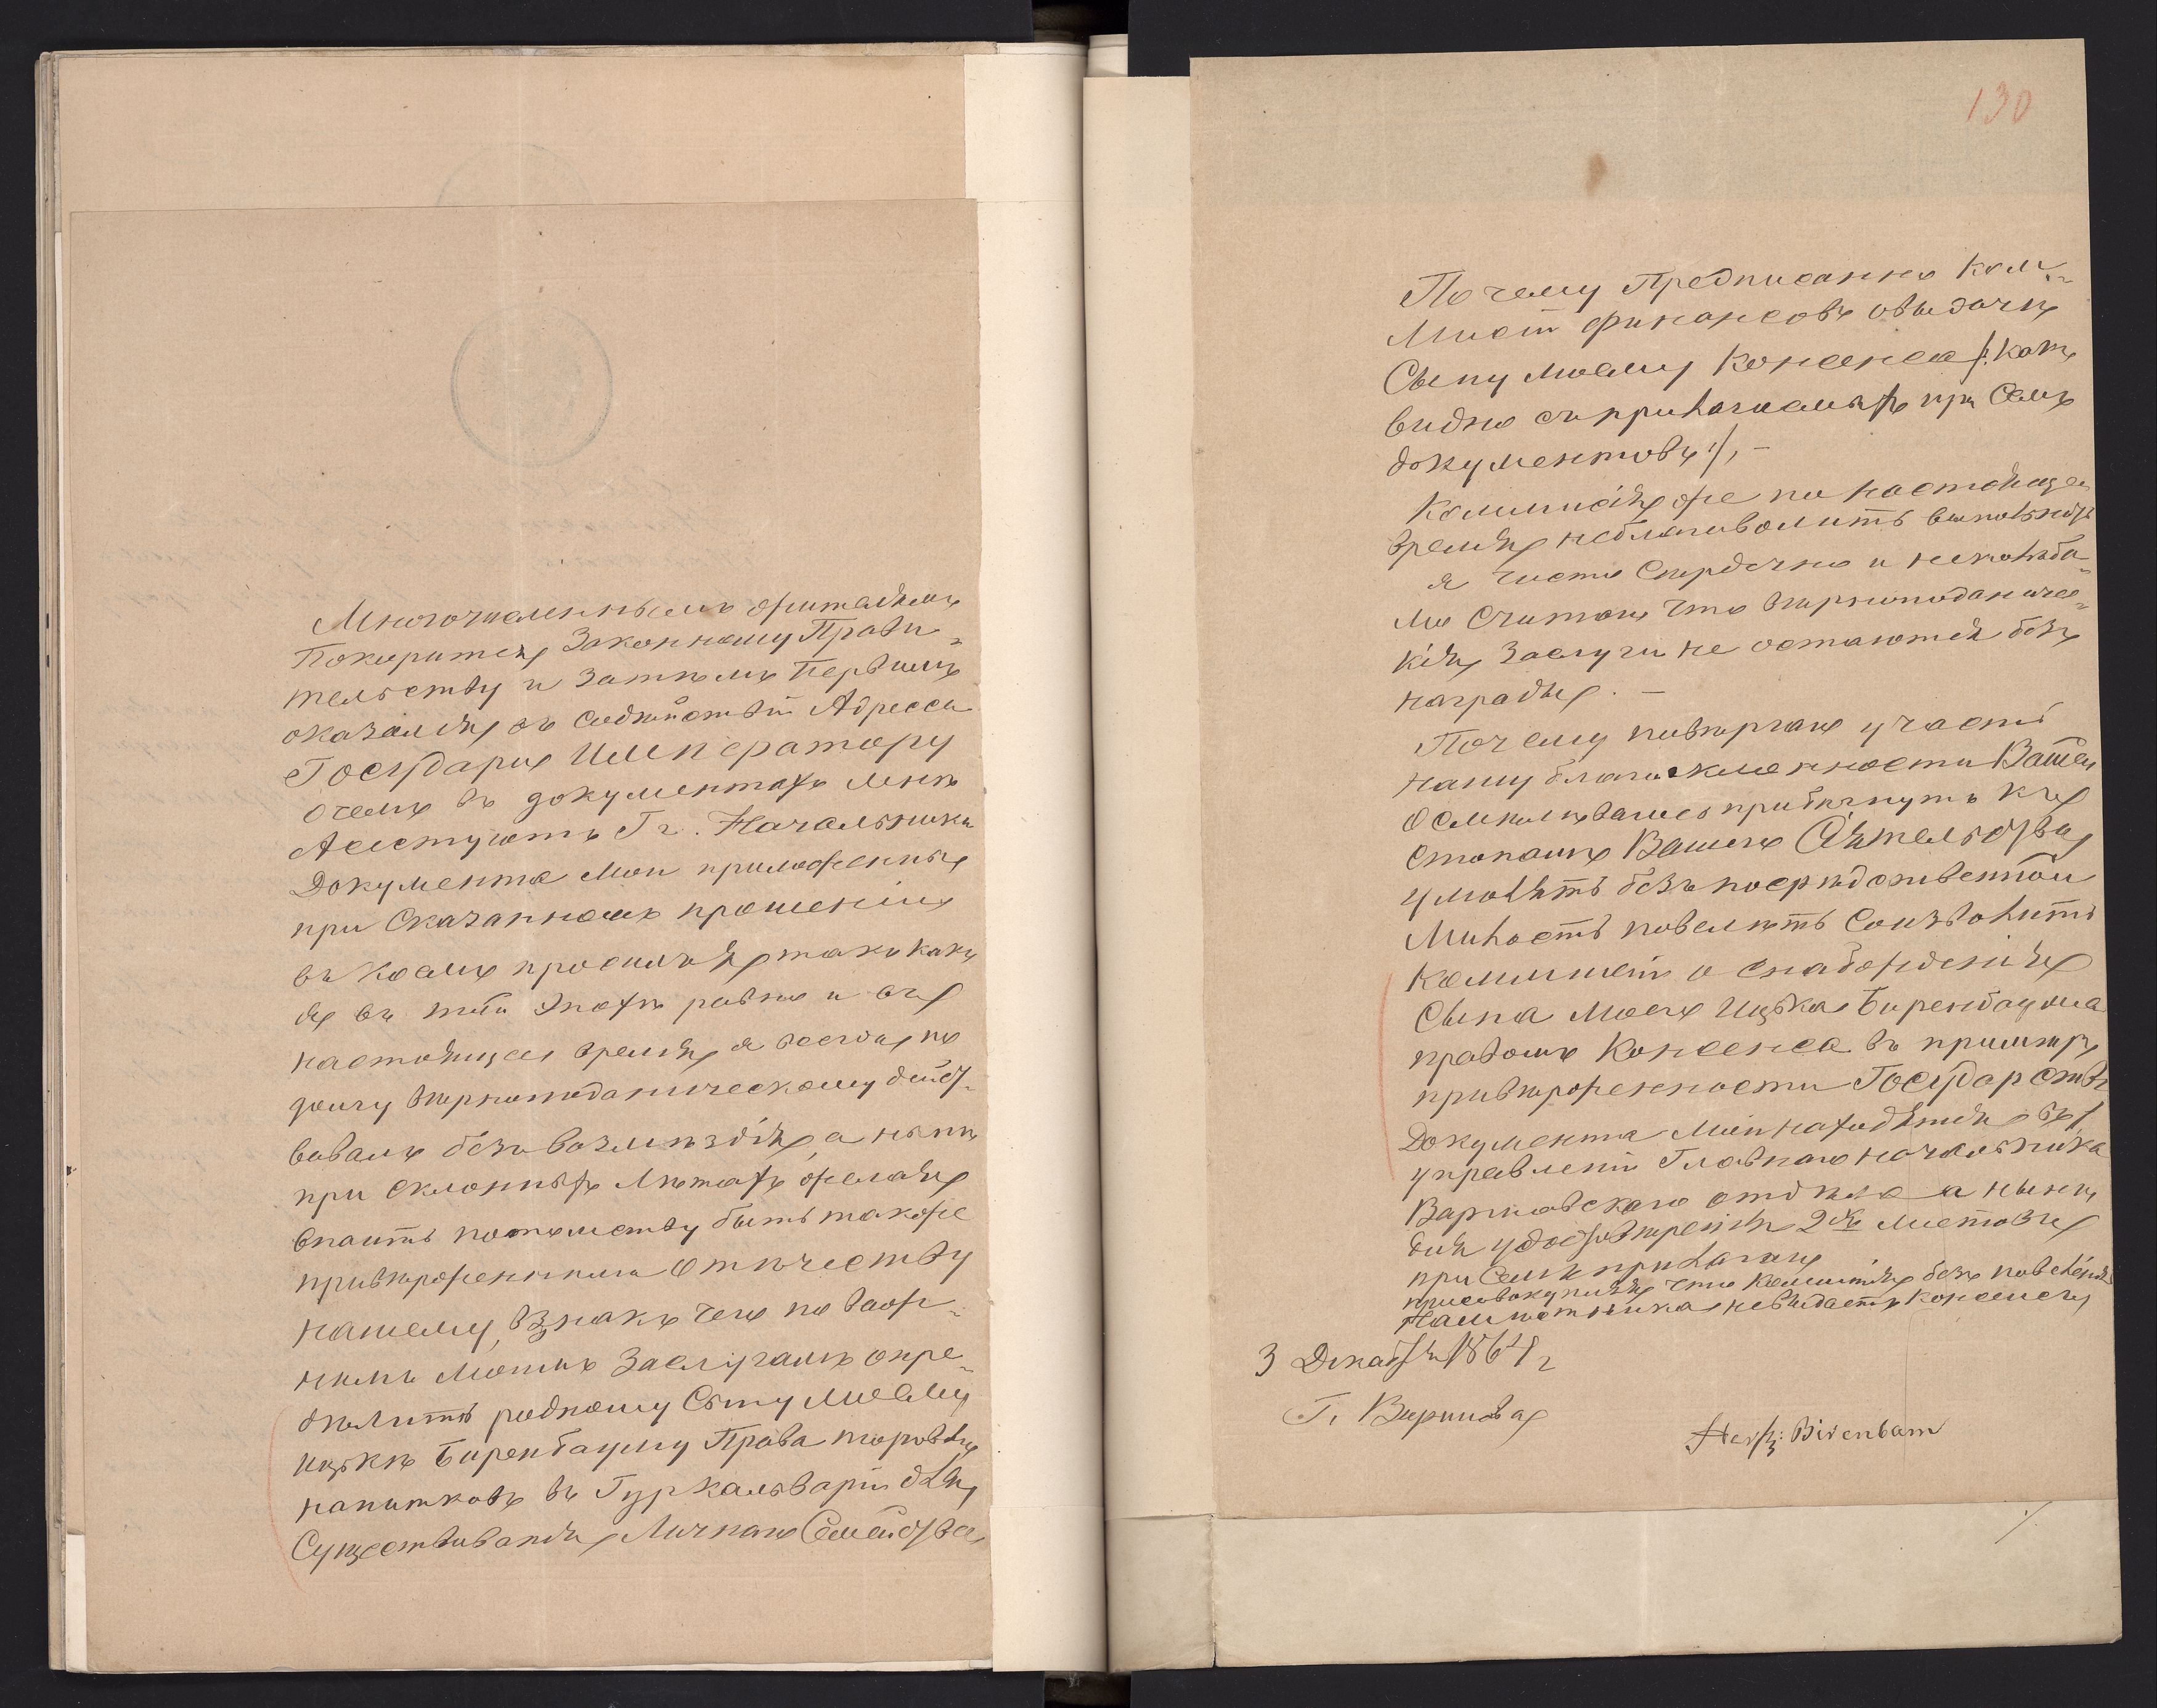 Многочисленнымъ жителямъ
Покорится Законному Прави-
тельству и Затѣмъ Первымъ
оказался въ Содѣйствіи Адресса
Государю Императору
о чемъ въ документахъ мнѣ
Аестуютъ Гг. Начальники
Документа мои приложенные
при Сказанномъ прошеніи
въ коемъ просился такъ какъ
я въ той Эпохѣ равно и въ
настоящее время я всегда по
долгу вѣрноподаническому дѣйст-
вовалъ безъ возмѣздія, а нынѣ
при склонныхъ Лѣтахъ желая
внаить потомству быть также
приверженными Отечеству
нашему, взнакъ чего по важ-
нымъ моимъ Заслугамъ опре-
дѣлить родному Сыну моему
Ицькѣ Биренбауму Права торовли
напитковъ въ Гуркальваріи для
Существованія Личнаго Семейства,
130
Почему Предписанно Ком-
Мисіи финансовъ овыдачи
Сыну моему Консенса /: какъ
видно съ прилагаемыхъ при Семъ
документовъ :/, -
Коммисія же по настоящее
время неблаговолитъ выполнить
я чисто Сердечно и непоколѣба-
мо Считаю что вѣрноподаничес-
кія Заслуги не остаются безъ
награды. -
Почему повѣргаю участь
нашу благосклонности Вашей
Осмѣливаюсь прибѣгнуть къ
стопамъ Вашего Сіятельства
умолять безъпосредственной
Милость повелѣть Соизволить
Коммисіи о снабженіи
Сына моего Ицька Биренбаума
правомъ Консенса въ примѣръ
приверженности Государству
Документа Мои находятся въ
управленіи Главнаго начальника
Варшавскаго отдѣла а нынѣ
для удостовѣренія 2хъ Листовъ
при Семъ прилагаю
присовокупляя что Коммисія безъ повеленія
Намѣстника невыдаетъ Консенсу
3 Декабря 1864 г
Г. Варшава
Hersz: Birenbam